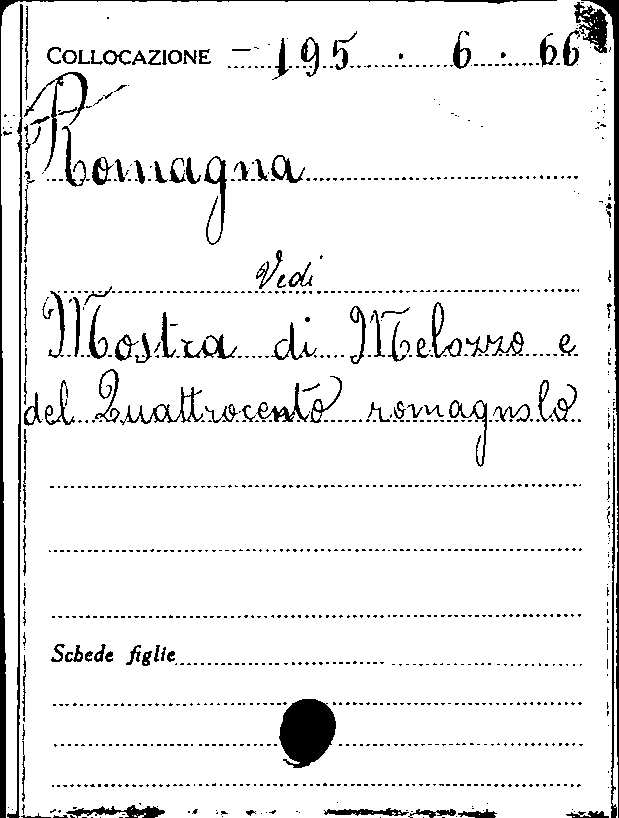 COLLOCAZIONE - 195 . 6 . 66
Romagna
Vedi
Mostra di Melozzo e
del Quattrocento romagnolo
Schede figlie